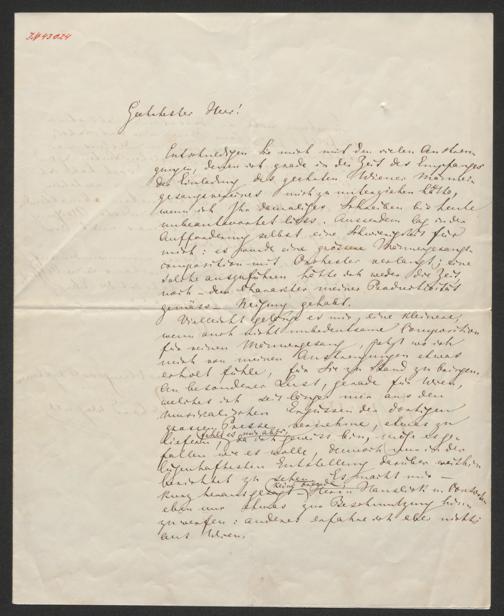 Geehrtester Herr!
Entschuldigen Sie mich mit den vielen Anstren-
gungen, denen ich grade in der Zeit des Empfanges
der Einladung des geehrten Wiener Männer
gesangvereines mich zu unterziehen hatte,
wenn ich Ihr damaliges Schreiben bis heute
unbeantwortet liess. Ausserdem lag in der
Aufforderung selbst eine Schwierigkeit für
mich: es wurde eine grössere Männergesangs-
composition mit Orchester verlangt; eine
solche auszuführen hätte ich weder die Zeit
noch - dem Charakter meiner Productivität
gemäss - Neigung gehabt.
Vielleicht gelänge es mir, eine kleinere,
wenn auch nicht unbedeutsame Composition
für reinen Männergesang, jetzt wo ich
mich von meinen Anstrengungen etwas
erholt fühle, für Sie zu Stand zu bringen.
An besonderer Lust, gerade für Wien,
welches ich seit länger nur aus den
musicalischen Ergüssen der dortigen
grossen Presse vernehme, etwas zu
liefern, fehlt es mir aber, da ich gewiss bin, möge es ge-
fallen wie es wolle, dennoch nur in der
lügenhaftesten Entstellung darüber weithin
berichtet zu sehen. Es macht mir -
kurz herausgesagt - keine Freude, Herrn Hanslick u.
eben nur etwas zur Beschmutzung hin
zuwerfen: anderes erfahre ich aber nicht
aus Wien.